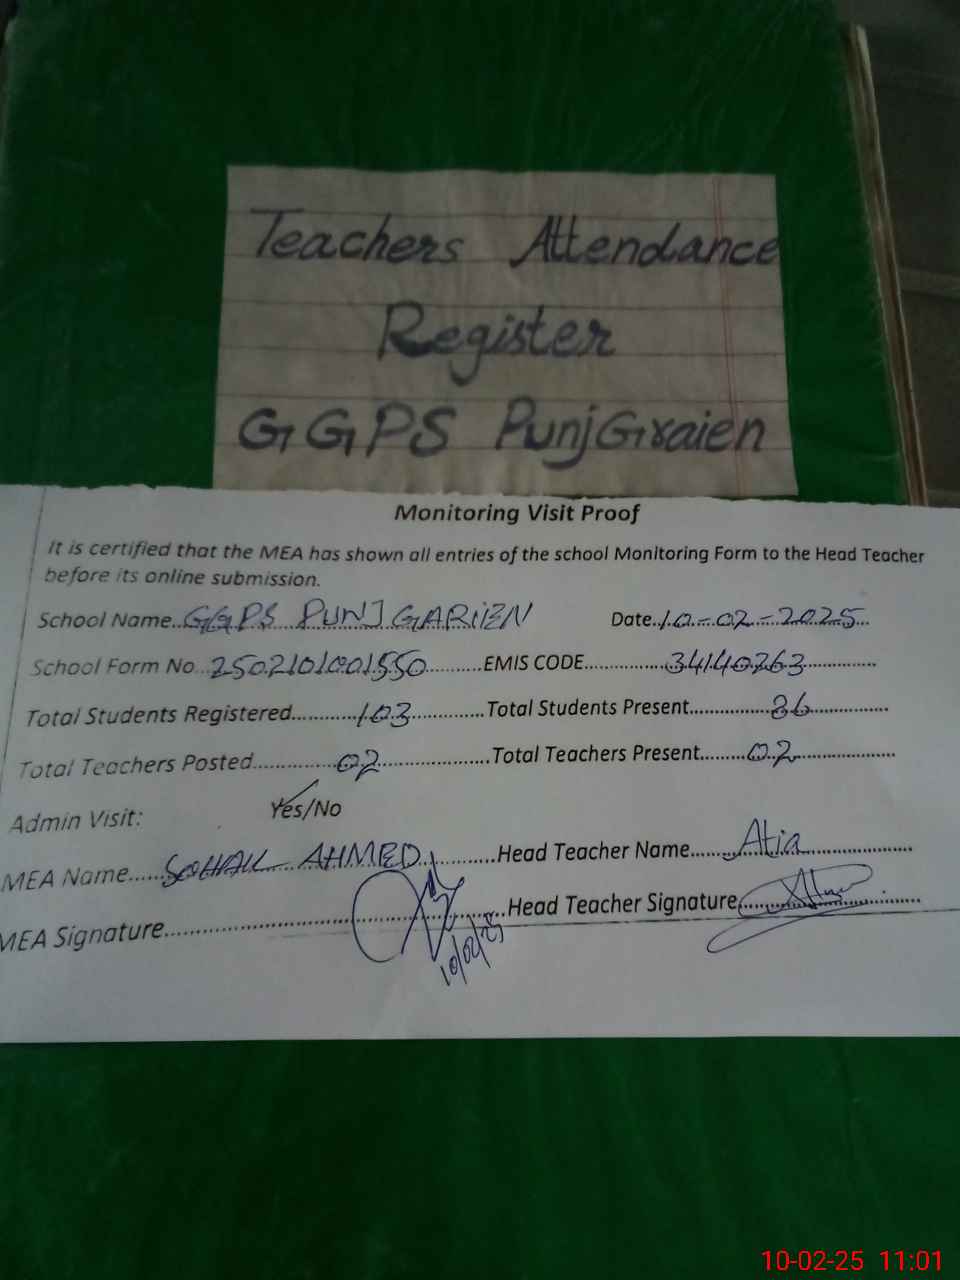 Teachers Attendance
Register
GGPS PunjGraien
Monitoring Visit Proof
It is certified that the MEA has shown all entries of the school Monitoring Form to the Head Teacher
before its online submission.
School Name..GGPS PUNJ GARIEN Date..10-02-2025..
School Form No...2502101001550..........EMIS CODE..............34140263..............
Total Students Registered............103...............Total Students Present.................86...............
Total Teachers Posted...............02....................Total Teachers Present.........02..................
Admin Visit: Yes/No
MEA Name......SOHAIL AHMED..............Head Teacher Name........Atia....................
MEA Signature.......................................Head Teacher Signature..............................
10/02/25
10-02-25 11:01